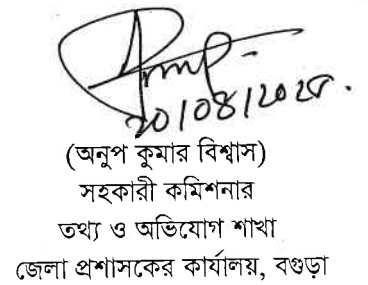 20/08/2025.
(অনুপ কুমার বিশ্বাস)
সহকারী কমিশনার
তথ্য ও অভিযোগ শাখা
জেলা প্রশাসকের কার্যালয়, বগুড়া